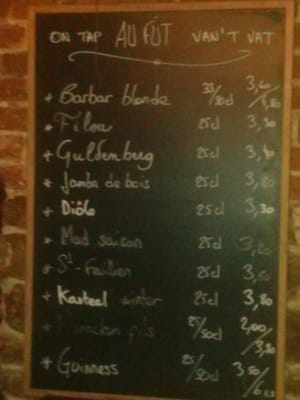 ON TAP AU FÛT VAN'T VAT
* Barbar blonde 33/50cl 3,60/4,80
* Filou 25cl 3,30
* Guldenberg 25cl 3,40
* Jambe de bois 25cl
* Diôle 25cl 3,30
* Mad saison 25cl
* St-Feuillien 25cl
* Kasteel winter 25cl 3,80
* pils 25/50cl 2,00/3,80
* Guinness 25/50cl 3,50